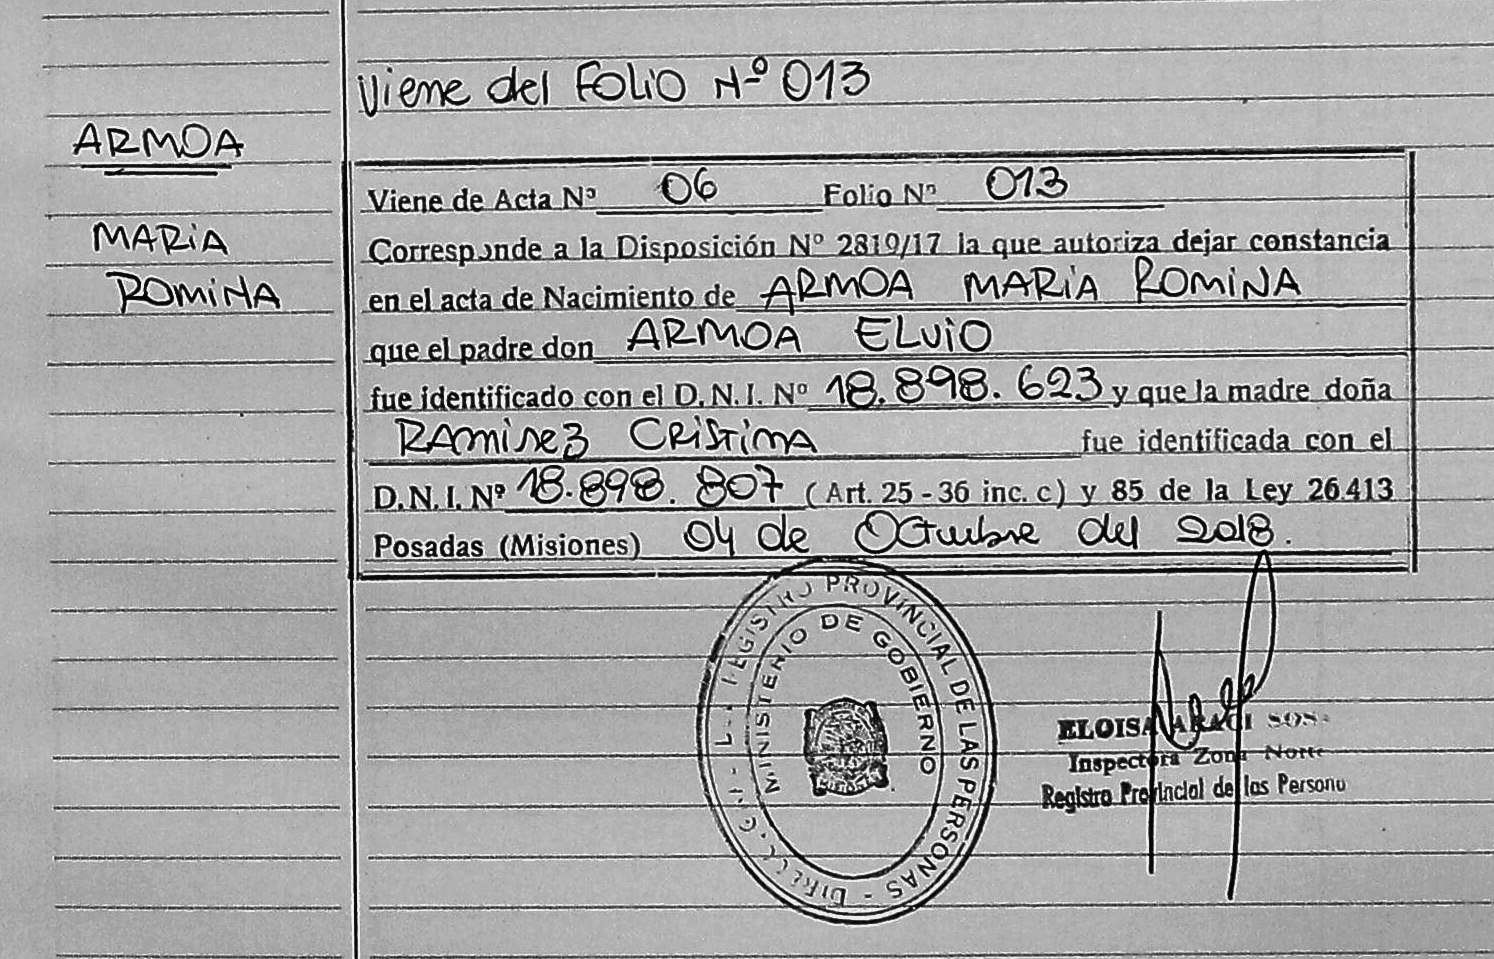 Viene del FOLIO Nº 013
ARMOA
MARIA
ROMINA
Viene de Acta Nº 06 Folio Nº 013
Corresponde a la Disposición Nº 2819/17 la que autoriza dejar constancia
en el acta de Nacimiento de ARMOA MARIA ROMINA
que el padre don ARMOA ELVIO
fue identificado con el D.N.I. Nº 18.898.623 y que la madre doña
RAMIREZ CRISTINA fue identificada con el
D.N.I. Nº 18.898.807 (Art. 25 - 36 inc. c) y 85 de la Ley 26.413
Posadas (Misiones) 04 de Octubre del 2018.
REGISTRO PROVINCIAL DE LAS PERSONAS
MINISTERIO DE GOBIERNO
ELOISA ARACI SOSA
Inspectora Zona Norte
Registro Provincial de las Persona